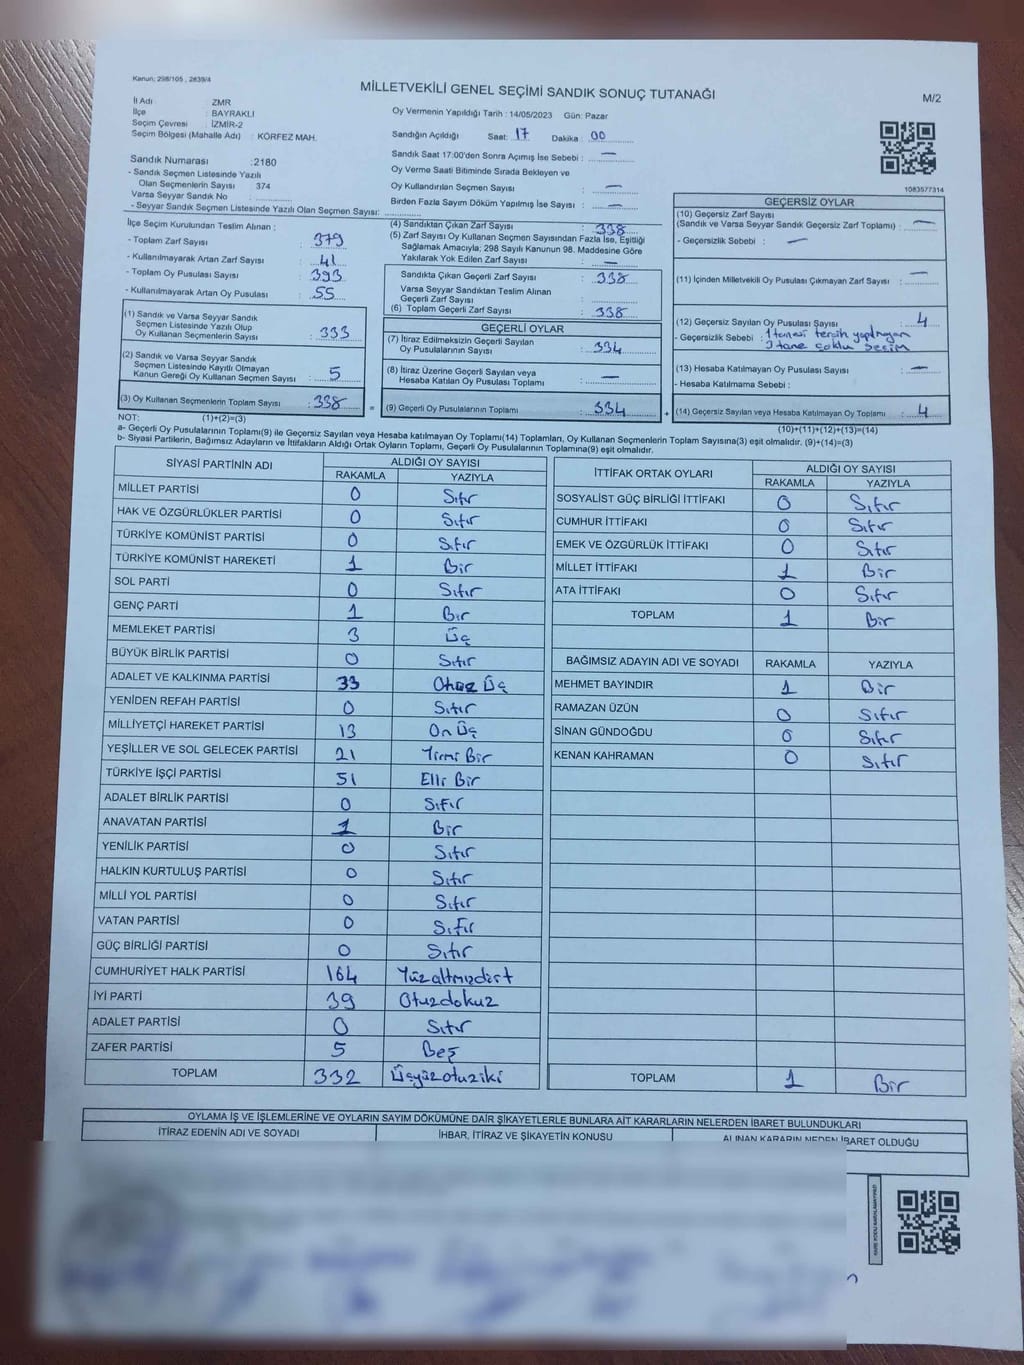 Kanun; 298/105 , 2839/4
MİLLETVEKİLİ GENEL SEÇİMİ SANDIK SONUÇ TUTANAĞI
M/2
İl Adı : ZMR
İlçe : BAYRAKLI
Seçim Çevresi : İZMİR-2
Seçim Bölgesi (Mahalle Adı) : KÖRFEZ MAH.
Oy Vermenin Yapıldığı Tarih : 14/05/2023 Gün: Pazar
Sandığın Açıldığı Saat: 17 Dakika : 00
Sandık Saat 17:00'den Sonra Açımış İse Sebebi : —
Oy Verme Saati Bitiminde Sırada Bekleyen ve
Oy Kullandırılan Seçmen Sayısı : —
Birden Fazla Sayım Döküm Yapılmış İse Sayısı : —
Sandık Numarası : 2180
- Sandık Seçmen Listesinde Yazılı
Olan Seçmenlerin Sayısı : 374
Varsa Seyyar Sandık No :
- Seyyar Sandık Seçmen Listesinde Yazılı Olan Seçmen Sayısı:
1083577314
İlçe Seçim Kurulundan Teslim Alınan :
- Toplam Zarf Sayısı : 379
- Kullanılmayarak Artan Zarf Sayısı : 41
- Toplam Oy Pusulası Sayısı : 393
- Kullanılmayarak Artan Oy Pusulası : 55
(1) Sandık ve Varsa Seyyar Sandık
Seçmen Listesinde Yazılı Olup
Oy Kullanan Seçmenlerin Sayısı : 333
(2) Sandık ve Varsa Seyyar Sandık
Seçmen Listesinde Kayıtlı Olmayan
Kanun Gereği Oy Kullanan Seçmen Sayısı : 5
(3) Oy Kullanan Seçmenlerin Toplam Sayısı : 338
(4) Sandıktan Çıkan Zarf Sayısı : 338
(5) Zarf Sayısı Oy Kullanan Seçmen Sayısından Fazla İse, Eşitliği
Sağlamak Amacıyla; 298 Sayılı Kanunun 98. Maddesine Göre
Yakılarak Yok Edilen Zarf Sayısı : —
Sandıkta Çıkan Geçerli Zarf Sayısı : 338
Varsa Seyyar Sandıktan Teslim Alınan
Geçerli Zarf Sayısı :
(6) Toplam Geçerli Zarf Sayısı : 338
GEÇERLİ OYLAR
(7) İtiraz Edilmeksizin Geçerli Sayılan
Oy Pusulalarının Sayısı : 334
(8) İtiraz Üzerine Geçerli Sayılan veya
Hesaba Katılan Oy Pusulası Toplamı : —
= (9) Geçerli Oy Pusulalarının Toplamı : 334
GEÇERSİZ OYLAR
(10) Geçersiz Zarf Sayısı
(Sandık ve Varsa Seyyar Sandık Geçersiz Zarf Toplamı) : —
- Geçersizlik Sebebi : —
(11) İçinden Milletvekili Oy Pusulası Çıkmayan Zarf Sayısı : —
(12) Geçersiz Sayılan Oy Pusulası Sayısı : 4
- Geçersizlik Sebebi : 1 tanesi tercih yapılmayan
3 tane çoklu seçim
(13) Hesaba Katılmayan Oy Pusulası Sayısı : —
- Hesaba Katılmama Sebebi :
+ (14) Geçersiz Sayılan veya Hesaba Katılmayan Oy Toplamı : 4
NOT: (1)+(2)=(3)
(10)+(11)+(12)+(13)=(14)
a- Geçerli Oy Pusulalarının Toplamı(9) ile Geçersiz Sayılan veya Hesaba katılmayan Oy Toplamı(14) Toplamları, Oy Kullanan Seçmenlerin Toplam Sayısına(3) eşit olmalıdır. (9)+(14)=(3)
b- Siyasi Partilerin, Bağımsız Adayların ve İttifakların Aldığı Ortak Oyların Toplamı, Geçerli Oy Pusulalarının Toplamına(9) eşit olmalıdır.
SİYASİ PARTİNİN ADI ALDIĞI OY SAYISI
RAKAMLA YAZIYLA
MİLLET PARTİSİ 0 Sıfır
HAK VE ÖZGÜRLÜKLER PARTİSİ 0 Sıfır
TÜRKİYE KOMÜNİST PARTİSİ 0 Sıfır
TÜRKİYE KOMÜNİST HAREKETİ 1 Bir
SOL PARTİ 0 Sıfır
GENÇ PARTİ 1 Bir
MEMLEKET PARTİSİ 3 Üç
BÜYÜK BİRLİK PARTİSİ 0 Sıfır
ADALET VE KALKINMA PARTİSİ 33 Otuz Üç
YENİDEN REFAH PARTİSİ 0 Sıfır
MİLLİYETÇİ HAREKET PARTİSİ 13 On Üç
YEŞİLLER VE SOL GELECEK PARTİSİ 21 Yirmi Bir
TÜRKİYE İŞÇİ PARTİSİ 51 Elli Bir
ADALET BİRLİK PARTİSİ 0 Sıfır
ANAVATAN PARTİSİ 1 Bir
YENİLİK PARTİSİ 0 Sıfır
HALKIN KURTULUŞ PARTİSİ 0 Sıfır
MİLLİ YOL PARTİSİ 0 Sıfır
VATAN PARTİSİ 0 Sıfır
GÜÇ BİRLİĞİ PARTİSİ 0 Sıfır
CUMHURİYET HALK PARTİSİ 164 Yüzaltmışdört
İYİ PARTİ 39 Otuzdokuz
ADALET PARTİSİ 0 Sıfır
ZAFER PARTİSİ 5 Beş
TOPLAM 332 Üçyüzotuziki
İTTİFAK ORTAK OYLARI ALDIĞI OY SAYISI
RAKAMLA YAZIYLA
SOSYALİST GÜÇ BİRLİĞİ İTTİFAKI 0 Sıfır
CUMHUR İTTİFAKI 0 Sıfır
EMEK VE ÖZGÜRLÜK İTTİFAKI 0 Sıfır
MİLLET İTTİFAKI 1 Bir
ATA İTTİFAKI 0 Sıfır
TOPLAM 1 Bir
BAĞIMSIZ ADAYIN ADI VE SOYADI RAKAMLA YAZIYLA
MEHMET BAYINDIR 1 Bir
RAMAZAN ÜZÜN 0 Sıfır
SİNAN GÜNDOĞDU 0 Sıfır
KENAN KAHRAMAN 0 Sıfır
TOPLAM 1 Bir
OYLAMA İŞ VE İŞLEMLERİNE VE OYLARIN SAYIM DÖKÜMÜNE DAİR ŞİKAYETLERLE BUNLARA AİT KARARLARIN NELERDEN İBARET BULUNDUKLARI
İTİRAZ EDENİN ADI VE SOYADI İHBAR, İTİRAZ VE ŞİKAYETİN KONUSU ALINAN KARARIN NEDEN İBARET OLDUĞU